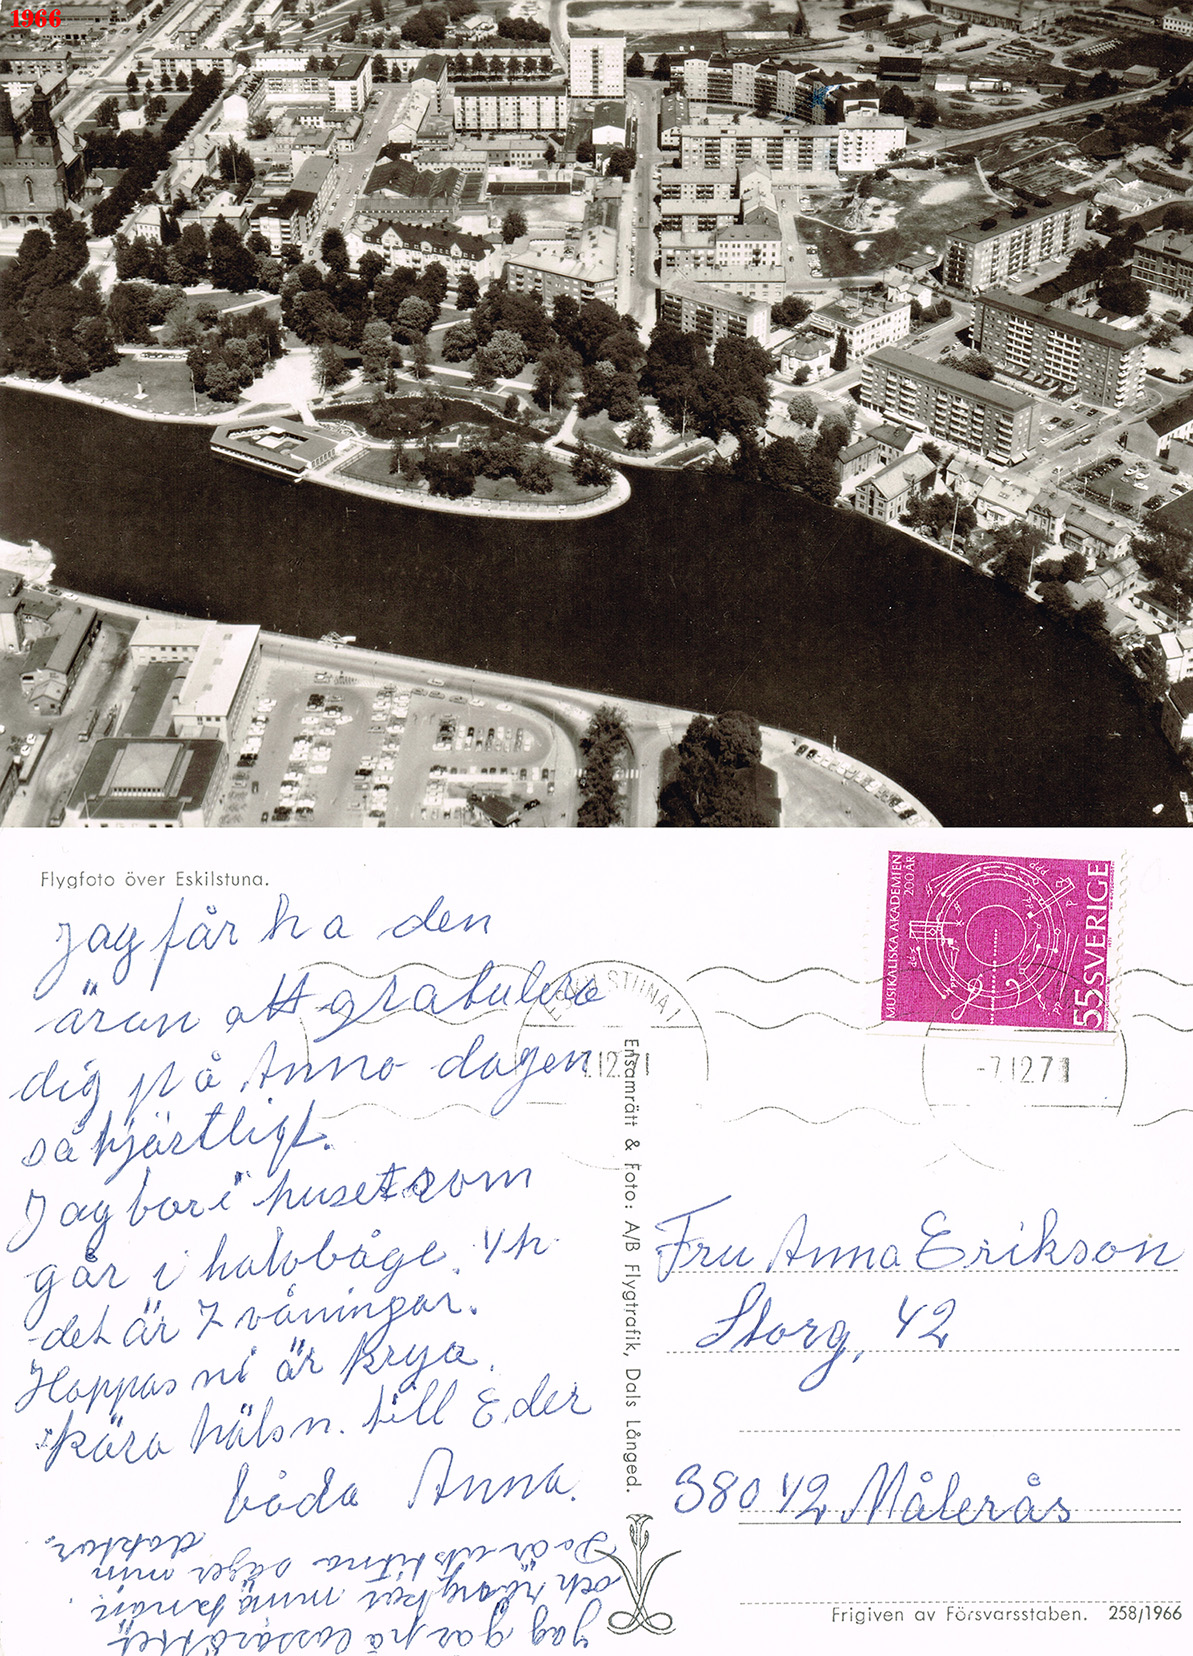 1966
Flygfoto över Eskilstuna.
Jag får ha den
äran att gratulera
dig på Anna dagen
så hjärtligt.
Jag bor i huset som
går i halvbåge.
det är 7 våningar.
Hoppas ni är krya.
kära hälsn. till Eder
båda Anna.
Jag går på lasarettet
och rör mina knän.
De är utslitna säger min
doktor.
MUSIKALISKA AKADEMIEN
200 ÅR
55 SVERIGE
ESKILSTUNA 1
7.12.71
-7.12.71
Ensamrätt & Foto: A/B Flygtrafik, Dals Långed.
Fru Anna Erikson
Storg. 42
380 42 Målerås
Frigiven av Försvarsstaben. 258/1966